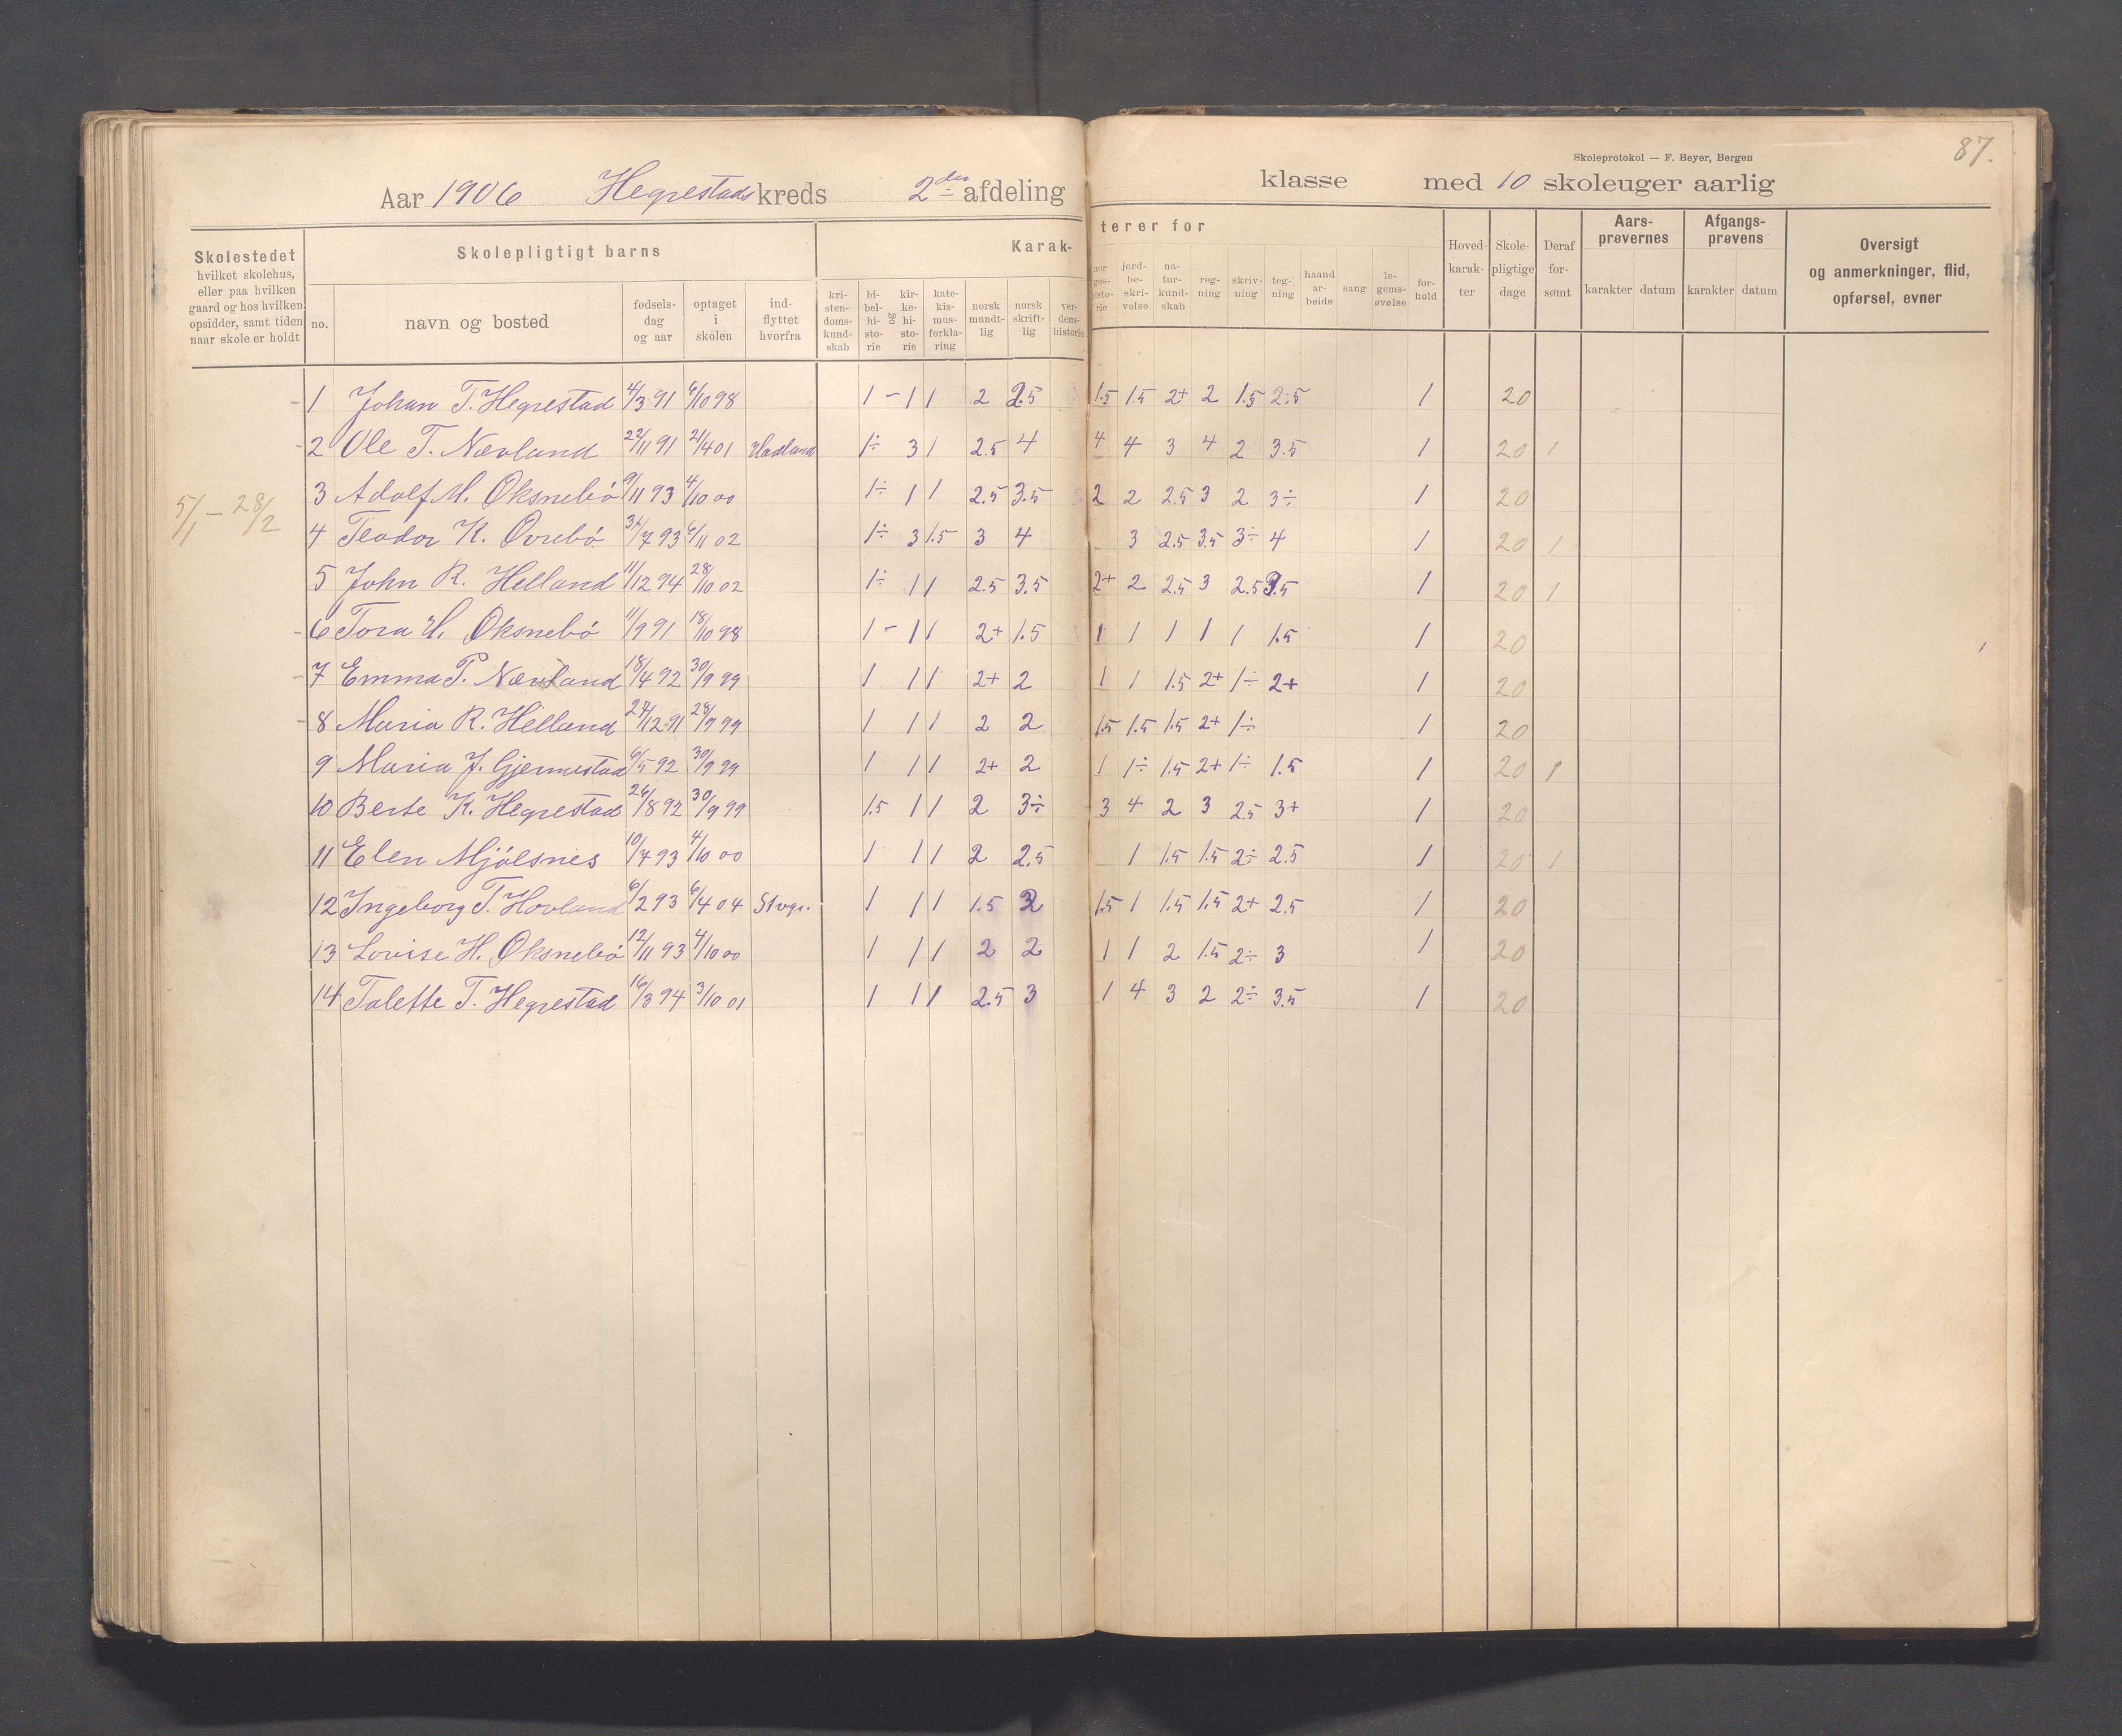 87.
Skoleprotokol — F. Beyer, Bergen
Aar 1906 Hegrestads kreds 2den afdeling klasse med 10 skoleuger aarlig
Skolestedet hvilket skolehus, eller paa hvilken gaard og hos hvilken opsidder, samt tiden naar skole er holdt
Skolepligtigt barns
no. navn og bosted fødselsdag og aar optaget i skolen indflyttet hvorfra
Karakterer for
kristendomskundskab bibelhistorie og kirkehistorie katekismusforklaring norsk mundtlig norsk skriftlig verdenshistorie norgeshistorie jordbeskrivelse naturkundskab regning skrivning tegning haandarbeide sang legemsøvelse forhold
Hovedkarakter Skolepligtige dage Deraf forsømt
Aarsprøvernes karakter datum
Afgangsprøvens karakter datum
Oversigt og anmerkninger, flid, opførsel, evner
5/1 – 28/2
1 Johan T. Hegrestad 4/3 91 6/10 98 1 – 1 1 2 2.5 1.5 1.5 2+ 2 1.5 2.5 1 20
2 Ole T. Nævland 22/11 91 21/4 01 Hadland 1÷ 3 1 2.5 4 4 4 3 4 2 3.5 1 20 1
3 Adolf M. Øksnebø 9/11 93 4/10 00 1÷ 1 1 2.5 3.5 2 2 2.5 3 2 3÷ 1 20
4 Teodor K. Ovrebø 31/7 93 6/11 02 1÷ 3 1.5 3 4 3 2.5 3.5 3÷ 4 1 20 1
5 John R. Helland 11/12 94 28/10 02 1÷ 1 1 2.5 3.5 2+ 2 2.5 3 2.5 3.5 1 20 1
6 Tora H. Øksnebø 11/9 91 18/10 98 1 – 1 1 2+ 1.5 1 1 1 1 1 1.5 1 20
7 Emma P. Nævland 18/4 92 30/9 99 1 1 1 2+ 2 1 1 1.5 2+ 1÷ 2+ 1 20
8 Maria R. Helland 27/12 91 28/9 99 1 1 1 2 2 1.5 1.5 1.5 2+ 1÷ 1 20
9 Maria J. Gjermestad 6/5 92 30/9 99 1 1 1 2+ 2 1 1÷ 1.5 2+ 1÷ 1.5 1 20 1
10 Berte K. Hegrestad 26/8 92 30/9 99 1.5 1 1 2 3÷ 3 4 2 3 2.5 3+ 1 20
11 Elen Mjølsnes 10/7 93 4/10 00 1 1 1 2 2.5 1 1.5 1.5 2÷ 2.5 1 20 1
12 Ingeborg T. Hovland 6/2 93 6/4 04 Stvgr. 1 1 1 1.5 2 1.5 1 1.5 1.5 2+ 2.5 1 20
13 Lovise H. Øksnebø 12/11 93 4/10 00 1 1 1 2 2 1 1 2 1.5 2÷ 3 1 20
14 Talette T. Hegrestad 16/3 94 3/10 01 1 1 1 2.5 3 1 4 3 2 2÷ 3.5 1 20